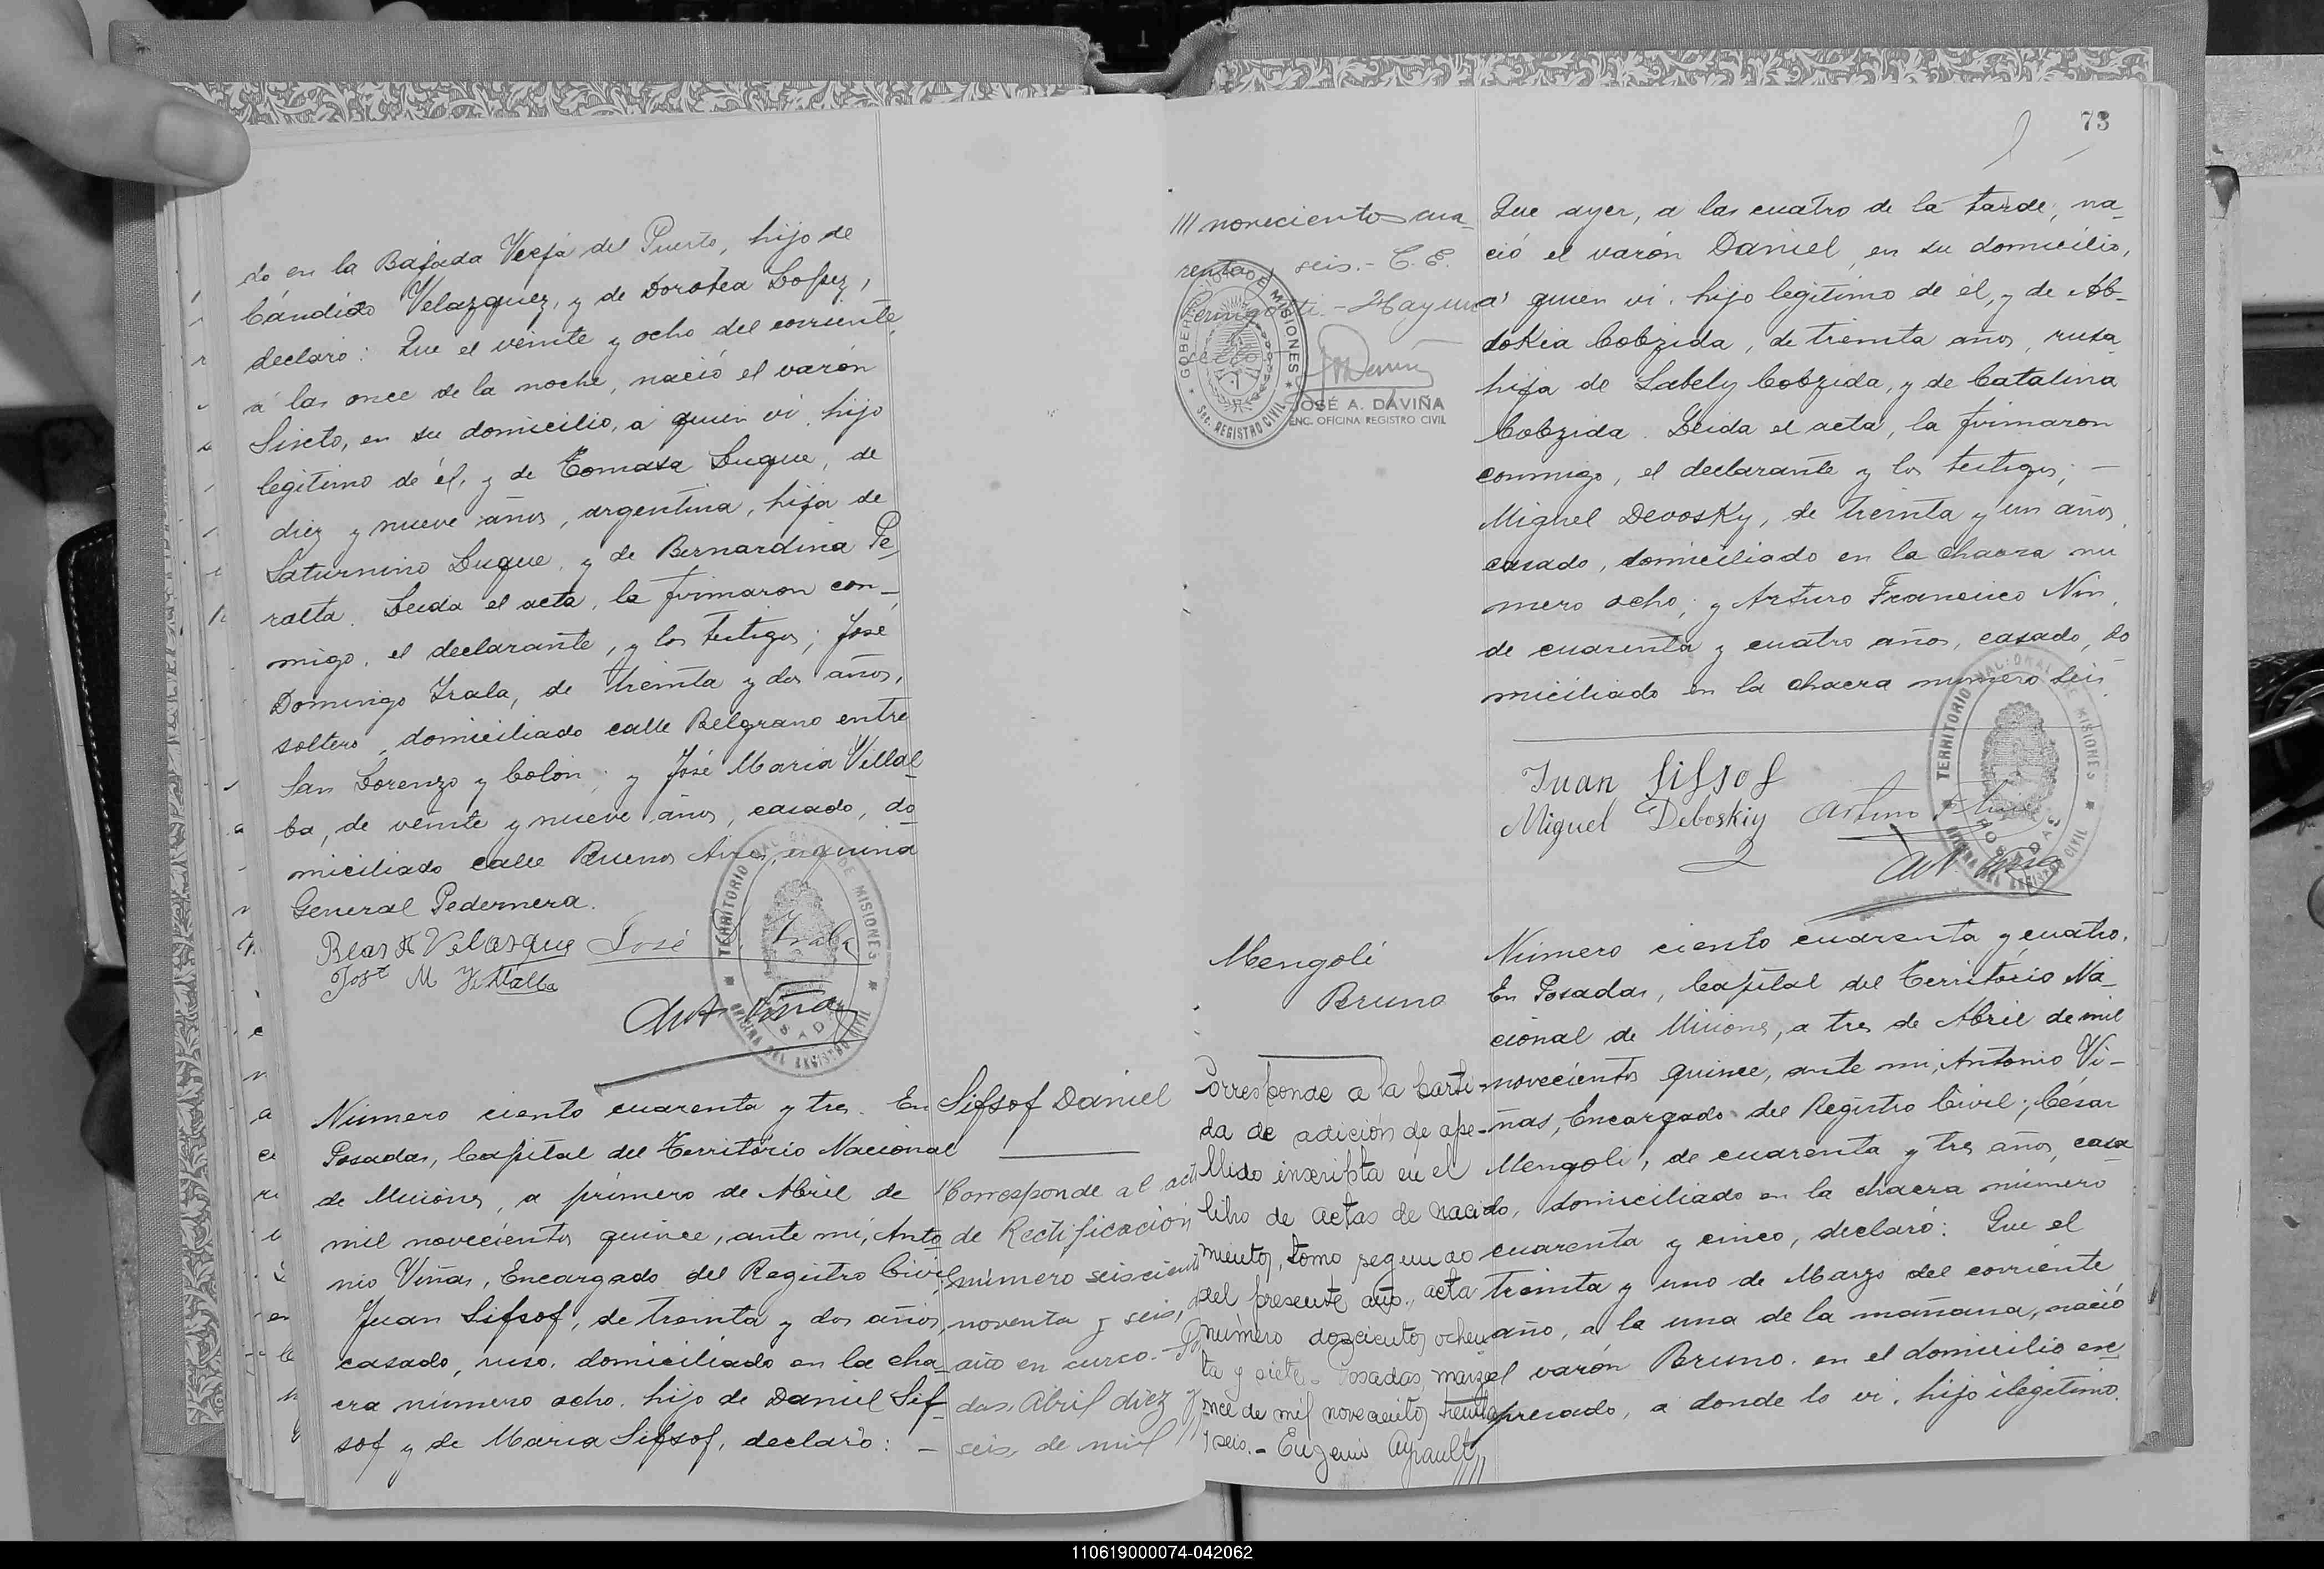 do en la Bajada Vieja del Puerto, hijo de
Cándido Velazquez, y de Dorotea Lopez,
declaró: Que el veinte y ocho del corriente,
á las once de la noche, nació el varón
Sixto, en su domicilio, á quien vi, hijo
legítimo de él, y de Tomasa Luque, de
diez y nueve años, argentina, hija de
Saturnino Luque, y de Bernardina Pe
ralta. Leida el acta, la firmaron con-
migo, el declarante, y los testigos; José
Domingo Irala, de treinta y dos años,
soltero, domiciliado calle Belgrano entre
San Lorenzo y Colón; y José Maria Villal
ba, de veinte y nueve años, casado, do
miciliado calle Buenos Aires, esquina
General Pedernera.
Blas Velasque José Irala
José M Villalba
Ant Viñas
TERRITORIO NACIONAL DE MISIONES
OFICINA DEL REGISTRO CIVIL
POSADAS
Número ciento cuarenta y tres. En
Posadas, Capital del Territorio Nacional
de Misiones, a primero de Abril de
mil novecientos quince, ante mi, Anto
nio Viñas, Encargado del Registro Civil;
Juan Sifsof, de treinta y dos años,
casado, ruso, domiciliado en la cha
cra número ocho, hijo de Daniel Sif
sof y de Maria Sifsof, declaró: -
Sifsof Daniel
Corresponde al act
de Rectificación
número seiscient
noventa y seis,
año en curso.-
das, Abril diez y
seis, de mil ///
73
/// novecientos cua
renta seis.- C. E.
Hayun
GOBERNACION DE MISIONES
Sec. REGISTRO CIVIL
JOSÉ A. DAVIÑA
ENC. OFICINA REGISTRO CIVIL
Que ayer, a las cuatro de la tarde, na
ció el varón Daniel, en su domicilio,
a quien vi, hijo legítimo de él, y de Ab-
dokia Cobzida, de treinta años, rusa
hija de Sabely Cobzida, y de Catalina
Cobzida. Leida el acta, la firmaron
conmigo, el declarante y los testigos; -
Miguel Devosky, de treinta y un años,
casado, domiciliado en la chacra nu
mero ocho; y Arturo Francisco Nin,
de cuarenta y cuatro años, casado, do
miciliado en la chacra numero seis
Juan Sifsof
Miguel Deboskiy Arturo F
Ant. Viñas
TERRITORIO NACIONAL DE MISIONES
OFICINA DEL REGISTRO CIVIL
POSADAS
Mengoli
Bruno
Corresponde a la Parti-
da de adición de ape-
llido inscripta en el
libro de actas de naci
mientos, tomo segundo
del presente año, acta
número doscientos ochen
ta y siete.- Posadas, marzo
once de mil novecientos treinta
y seis.- Eugenio Ayrault
////
Número ciento cuarenta y cuatro.
En Posadas, Capital del Territorio Na-
cional de Misiones, a tres de Abril de mil
novecientos quince, ante mi, Antonio Vi-
ñas, Encargado del Registro Civil; César
Mengoli, de cuarenta y tres años, casa
do, domiciliado en la chacra número
cuarenta y cinco, declaró: Que el
treinta y uno de Marzo del corriente
año, a la una de la mañana, nació
el varón Bruno, en el domicilio ex
presado, a donde lo vi, hijo ilegítimo
110619000074-042062